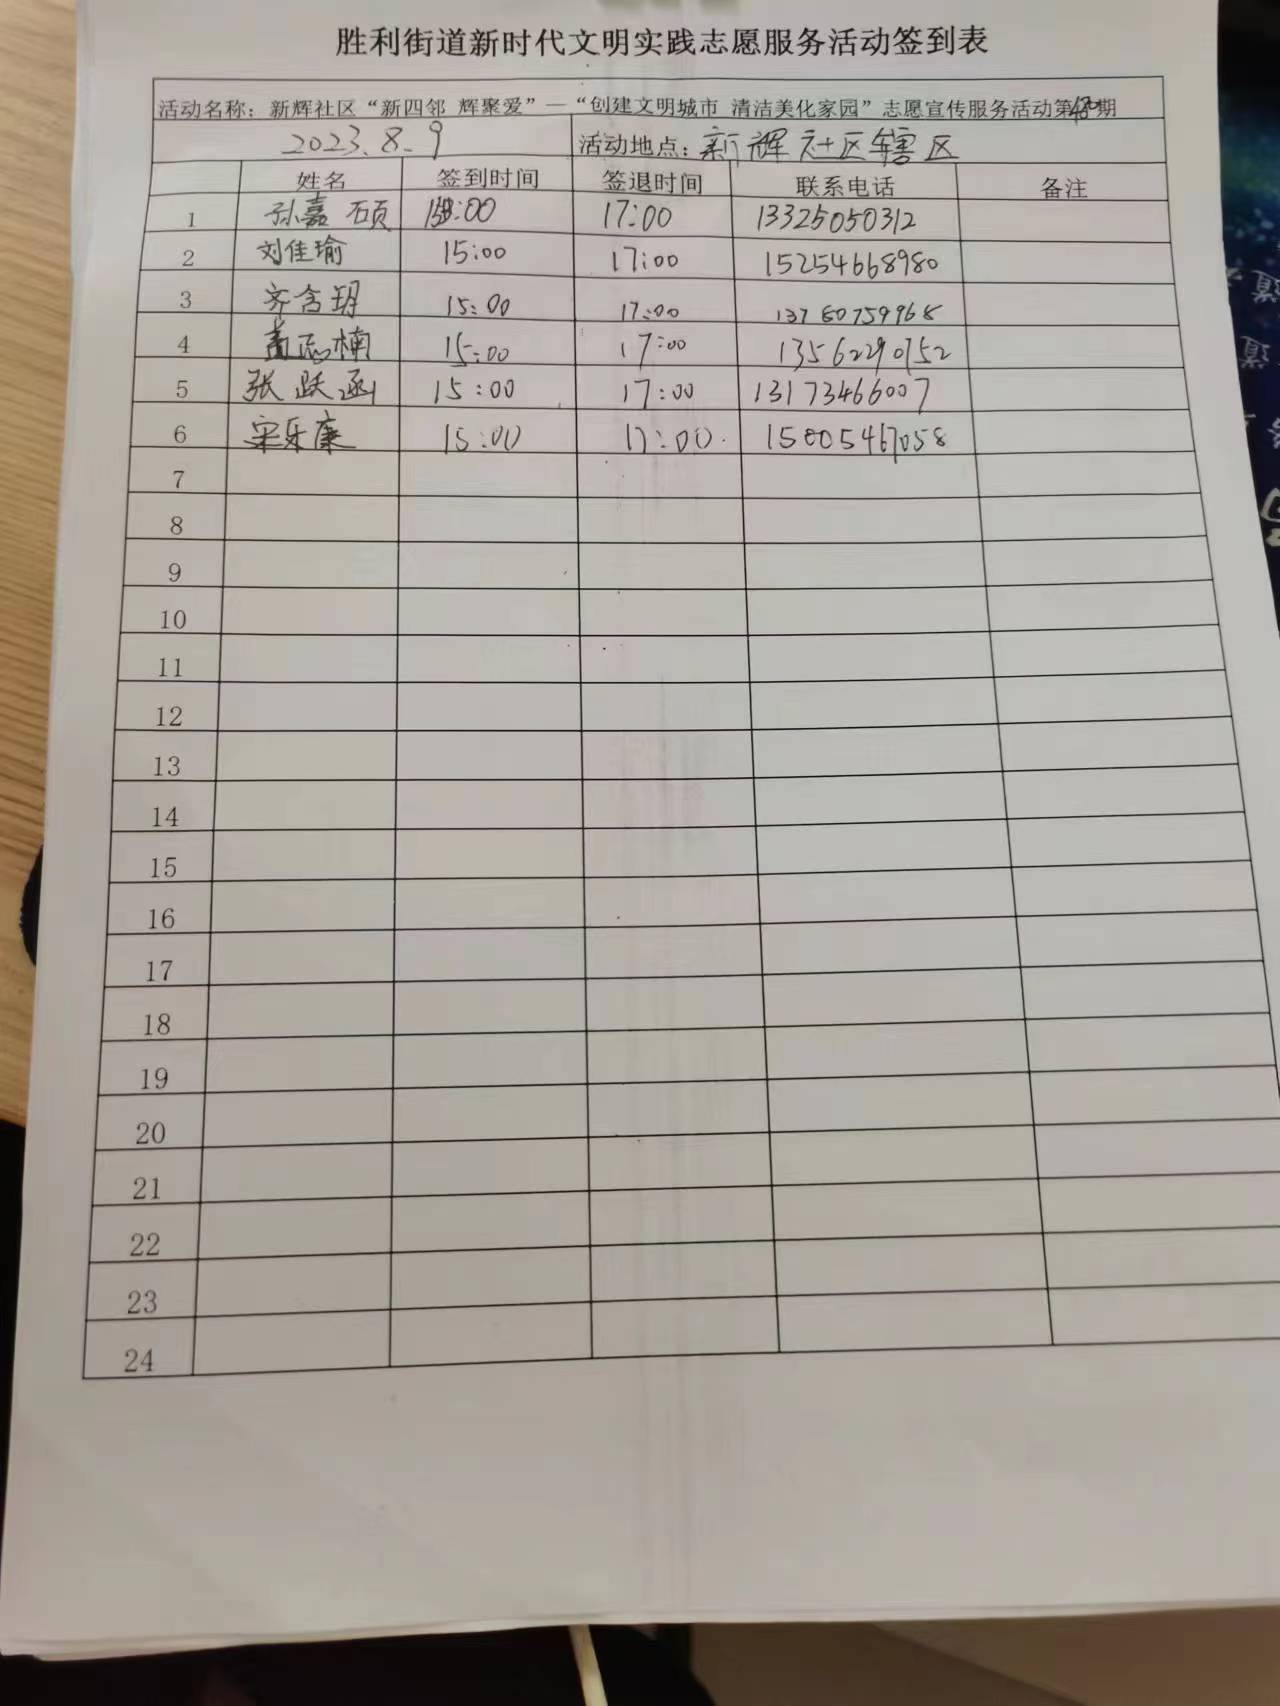 胜利街道新时代文明实践志愿服务活动签到表
活动名称：新辉社区“新四邻 辉聚爱”—“创建文明城市 清洁美化家园”志愿宣传服务活动第480期
2023.8.9 活动地点：新辉社区辖区
姓名 签到时间 签退时间 联系电话 备注
1 孙嘉硕 15:00 17:00 13325050312
2 刘佳瑜 15:00 17:00 15254668980
3 齐含玥 15:00 17:00 13780759968
4 志楠 15:00 17:00 13562290752
5 张跃函 15:00 17:00 13173466007
6 宋乐康 15:00 17:00 15005467058
7
8
9
10
11
12
13
14
15
16
17
18
19
20
21
22
23
24